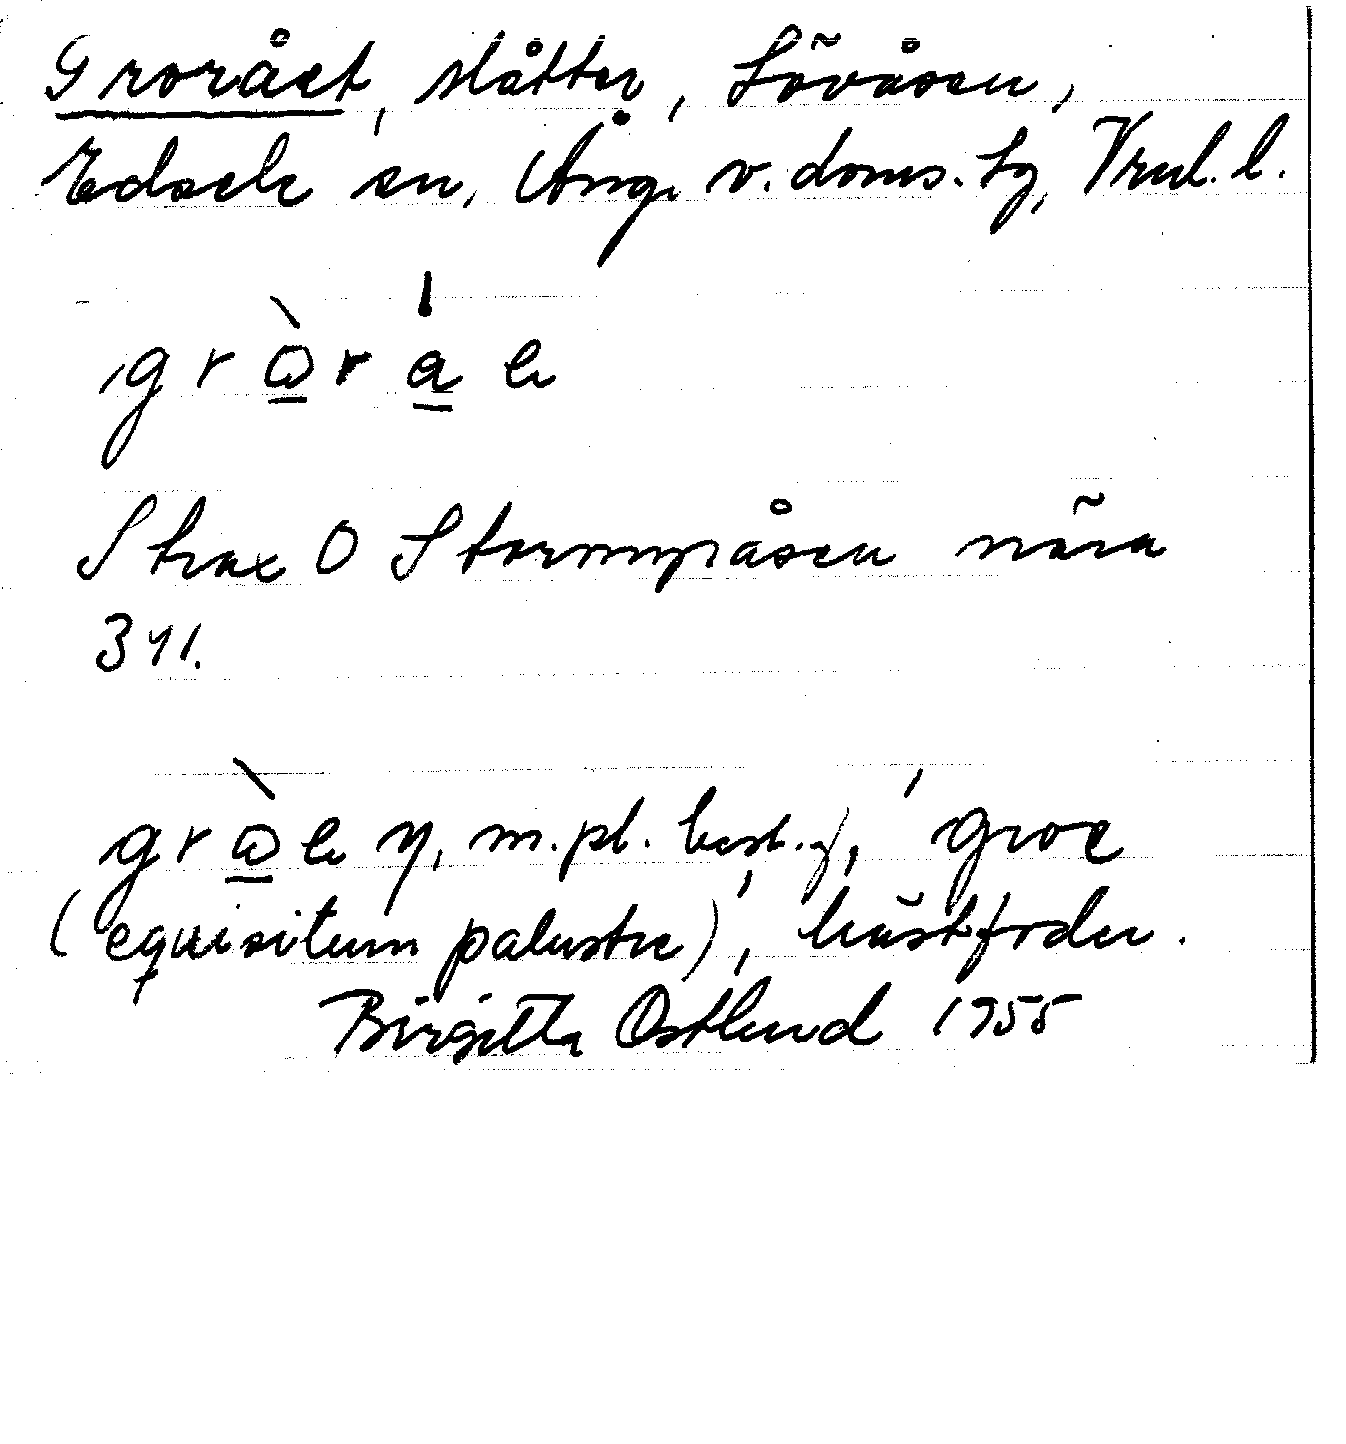 Grorået, slåtter, Lövåsen,
Edsele sn, Ång. v. doms. tg, Vrnl. l.
gròrá e
Strax O Stormmyråsen nära
341.
gròe η, m.pl. best. f, 'groe
(equisitum palustre)', hästfoder.
Birgitta Östlund 1955